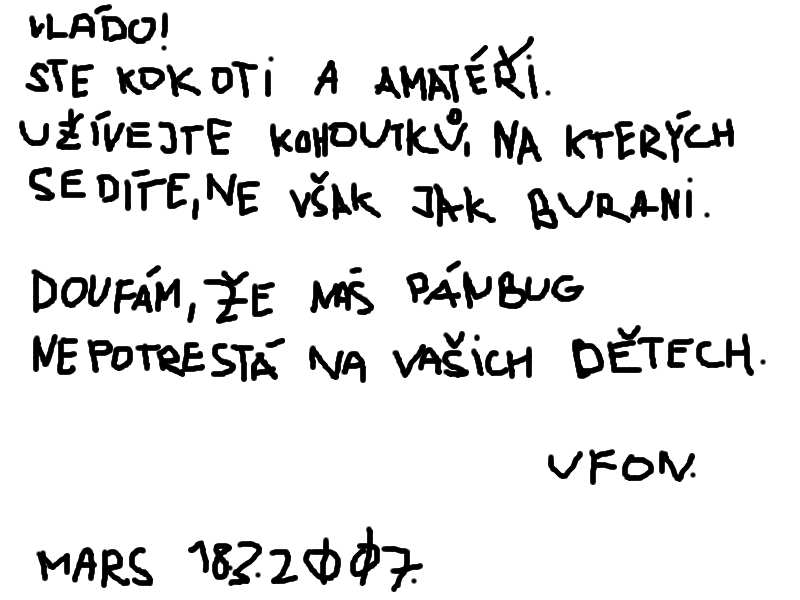 VLÁDO!
STE KOKOTI A AMATÉŘI.
UŽÍVEJTE KOHOUTKŮ, NA KTERÝCH
SEDÍTE, NE VŠAK JAK BURANI.
DOUFÁM, ŽE NÁŠ PÁNBUG
NEPOTRESTÁ NA VAŠICH DĚTECH.
VFON.
MARS 18.3.2007.